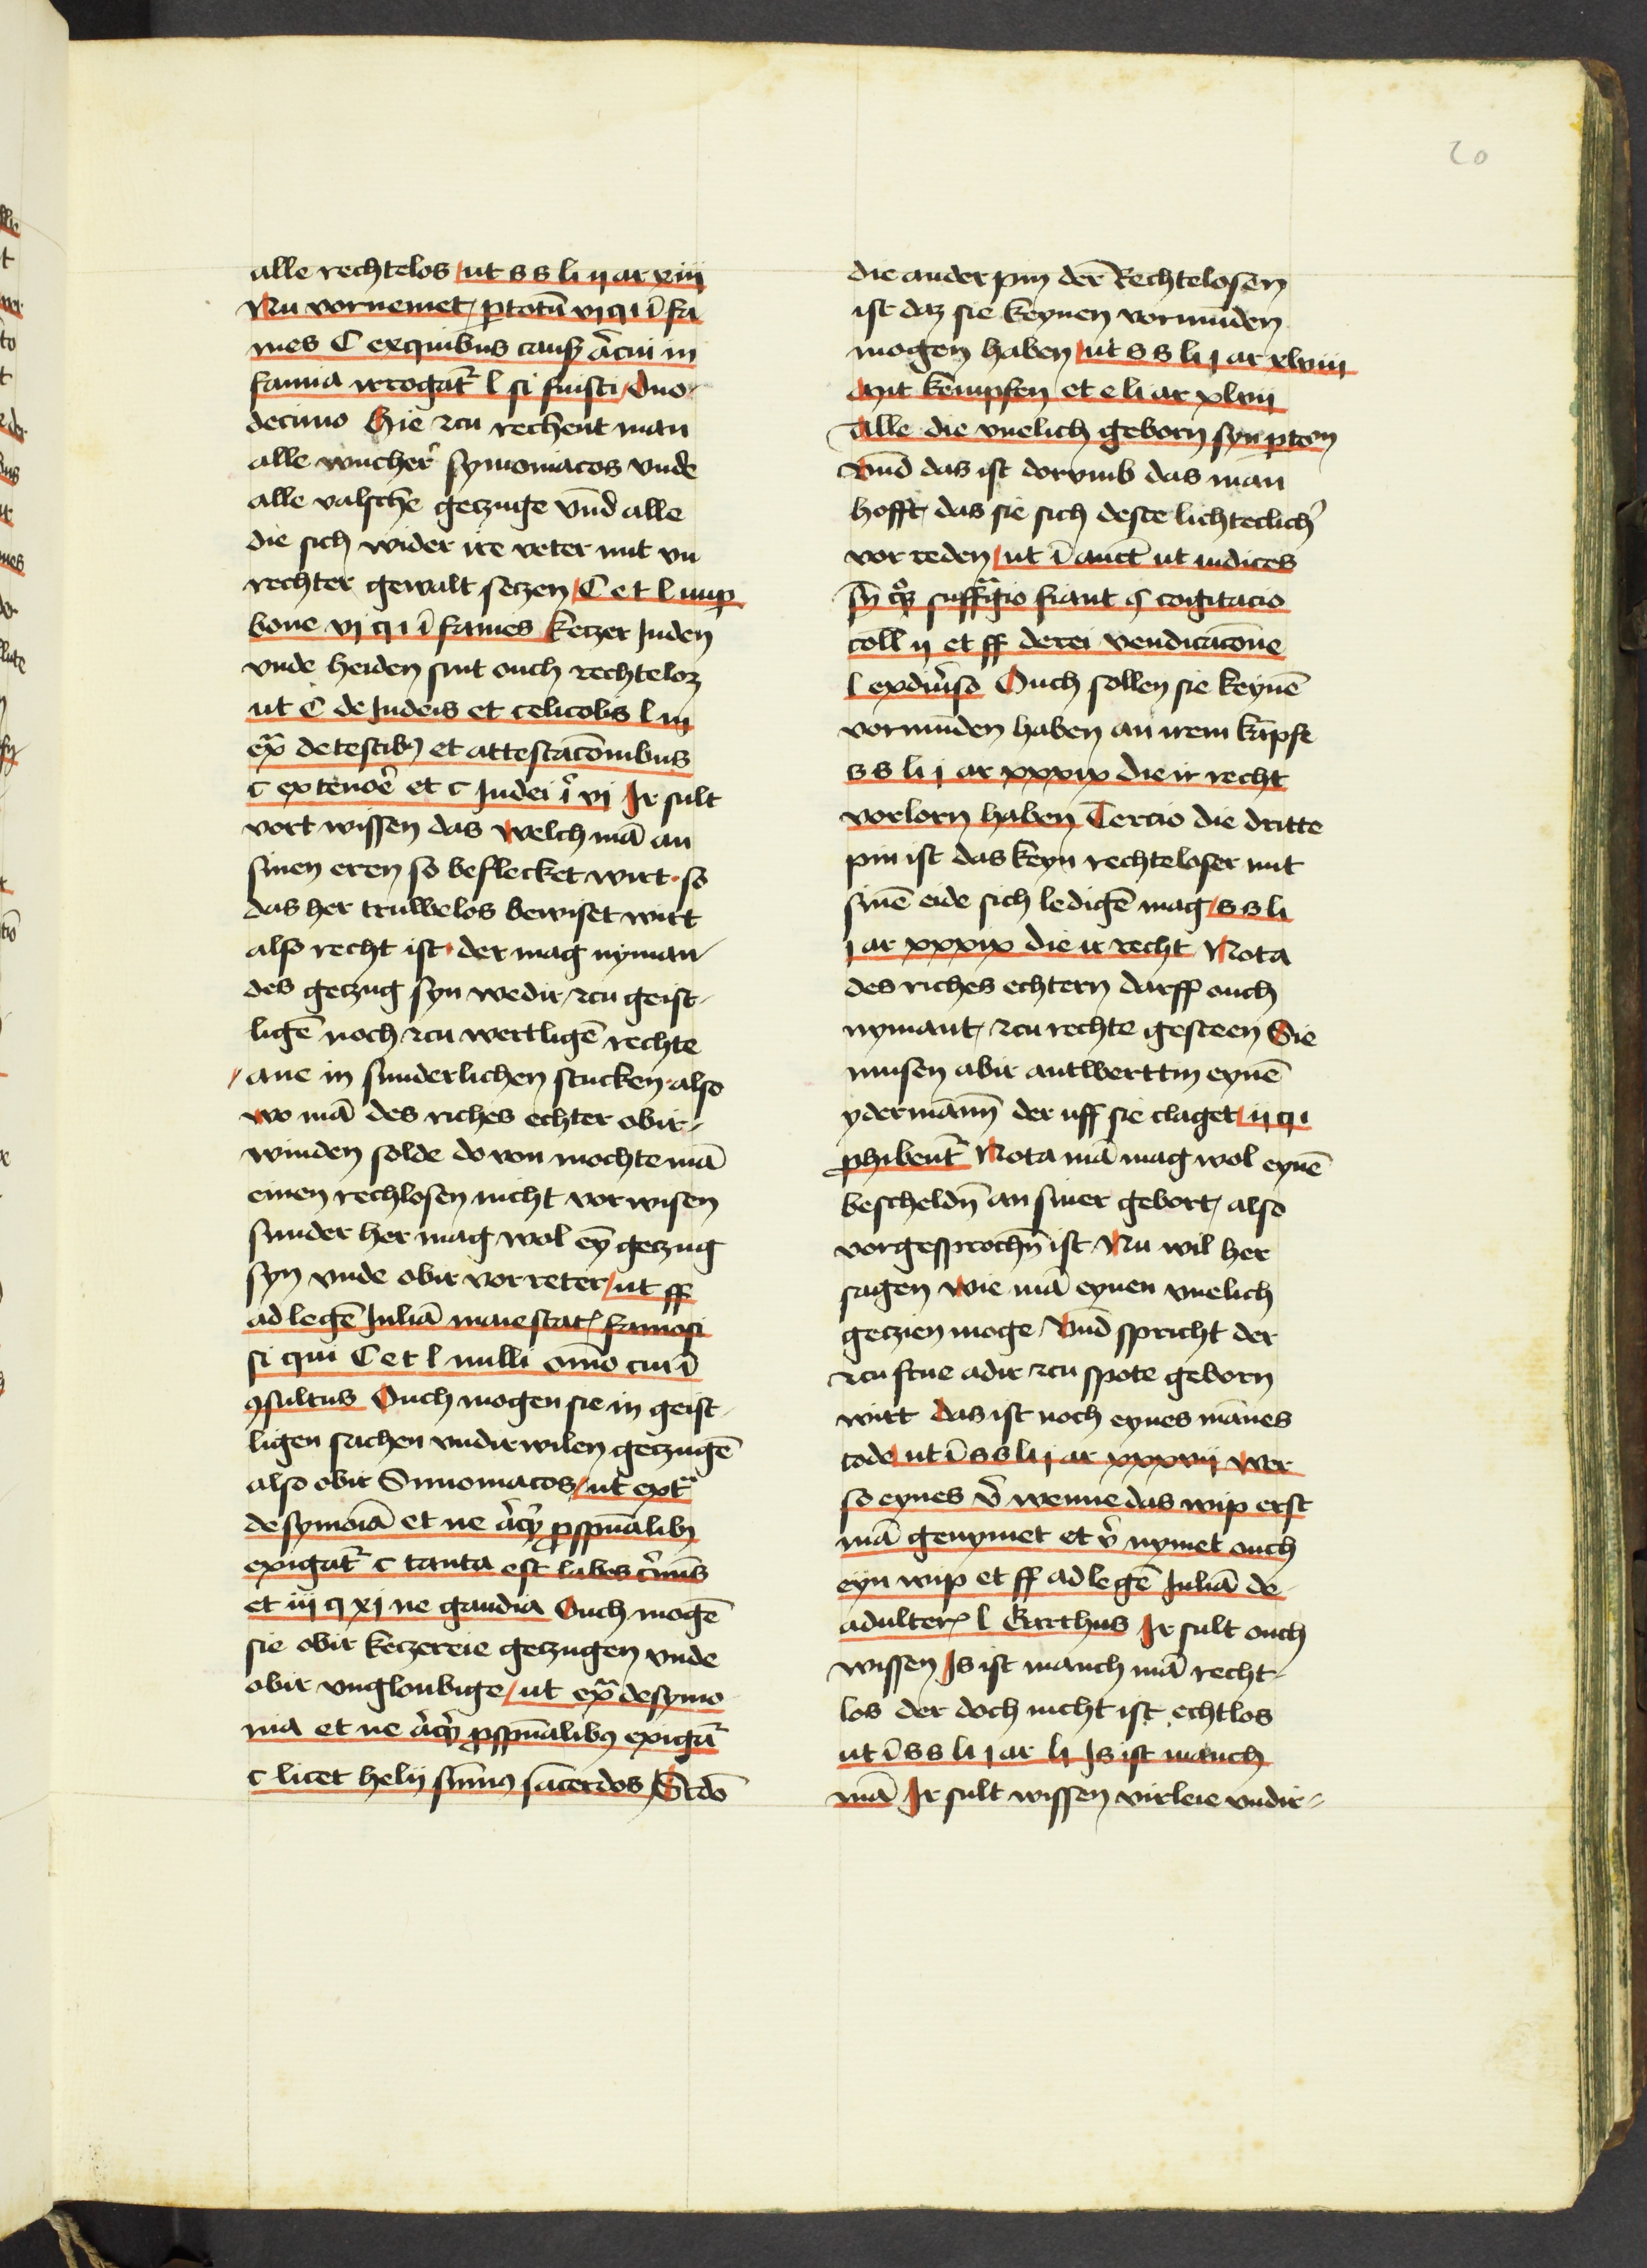 20
alle rechtelos ut s s li ij ar xiii
Nu vornemet ꝑtotū vi q i ī fa
mes C ex quibus caus̄ ācui in
famia irrogat᷑ l si fuisti Duo
decimo Hie zcu rechent man
alle wucher᷑ symoniacos vnde
alle valsche geczuge vn̄d alle
die sich wider ire veter mit vn
rechter gewalt seczen C et l imp
bone vi q i ī fames keczer Juden
vnde heiden sint ouch rechteloz
ut C de Judeis et celicolis l iii
ex̄ de testibꝰ et attestacōnibus
c ex tenoē et c Judei ī vi Ir sult
vort wissen das welch mā an
sinen eren so beflecket wirt so
das her truwelos bewiset wirt
also recht ist der mag nyman
des geczug syn wedir zcu geist
ligē noch zcu wertligē rechte
ane in sunderlichen stucken also
wo mā des riches echter obir
winden solde do von mochte mā
einen rechlosen nicht vorwisen
sunder her mag wol eȳ geczug
syn vnde obir vorreter ut ff
ad legē Juliā maiestat᷑ famosi
si qui C et l nulli om̄o cui ī
ꝯsultus Ouch mogen sie in geist
ligen sachen vndirwilen geczugē
also obir Simoniacos ut ext᷑
de symoīa et ne āq̄ ꝓspūalibꝫ
exigat᷑ c tanta est labes c̄mīs
et iij q xj ne gaudia Ouch mogē
sie obir keczereie geczugen vnde
obir vngloubige ut ex̄ de symo
nia et ne āq̄ ꝓspūalibꝰ exigāt
c licet helij sūmꝰ sacerdos Scdō
die ander pin der᷑ Rechtelosen
ist daz sie keynen vormūden
mogen haben ut s s li j ar xlviii
Mit kempfen et e li ar xlvii
Alle die vnelich geborn syn
Vnd das ist dorvmb das man
hofft das sie sich deste lichteclich᷑
vor reden ut ī auct̄ ut iudices
sn̄ suffragio fiant ꝯ cogitacio
coll ij et ff de rei vendicacōne
l ex diūso Ouch sollen sie keynē
vormūden haben an irem kāpfe
s s li j ar xxxix die ir recht
vorlorn haben Tercio die dritte
pin ist das keyn rechteloser mit
sinē eide sich ledigē mag s s li
j ar xxxix die ir recht Nota
des riches echtern darff ouch
nymant zcu rechte gesteen Sie
musen abir antwerttin eynē
ydermānn̄ der uff sie claget ij q i
ꝓhibent᷑ Nota mā mag wol eynē
bescheldn̄ an siner gebort also
vorgesprochn̄ ist Nu wil her
sagen wie mā eynen vnelich
geczien moge Vnd spricht der
zcu frue adir zcu spote geborn
wirt das ist noch eynes mānes
tode ut ī s s li j ar xxxvij Wer
so eynes v̄ wenne das wip erst
mā genymet et v̄ nymet ouch
eyn wip et ff ad legē Juliā de
adulter᷑ l Gracchus Ir sult ouch
wissen Is ist manch mā recht
los der doch nicht ist echtlos
ut ī s s li j ar lj Is ist manch
mā Ir sult wissen virleie vndir